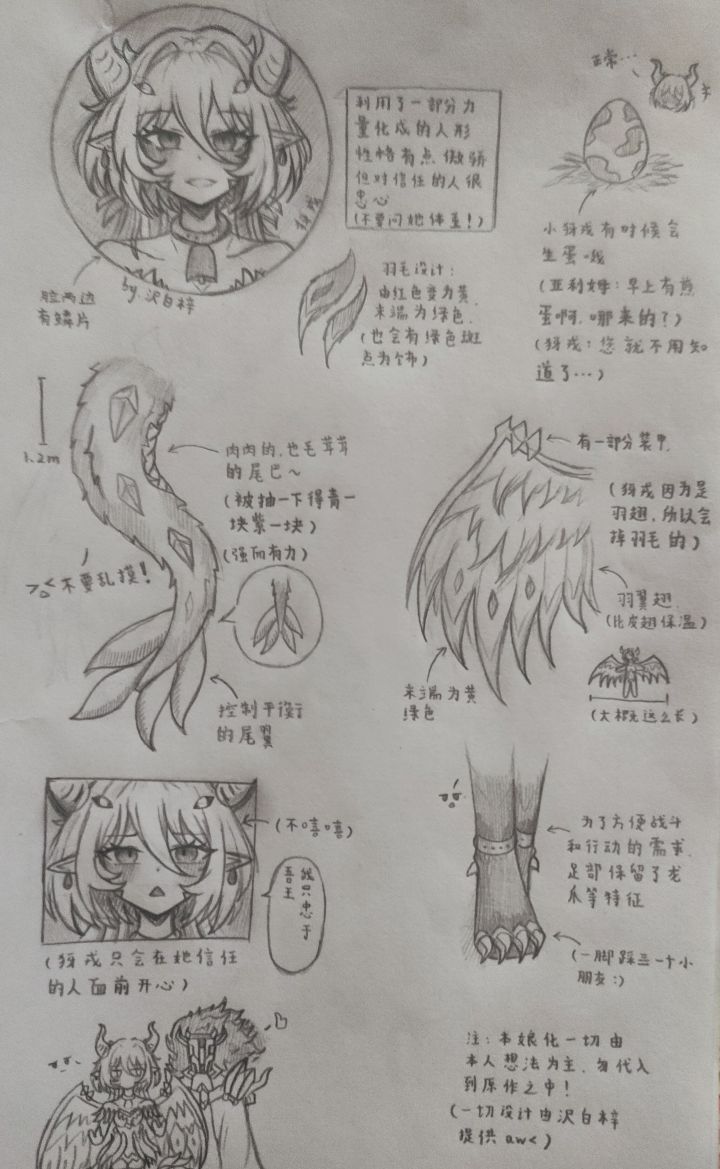 利用了一部分力
量化成的人形
性格有点傲骄
但对信任的人很
忠心
(不要问她体重!)
正常…
脸两边
有鳞片
by.沢白梓
羽毛设计:
由红色变为黄
末端为绿色.
(也会有绿色斑
点为饰)
小犽戎有时候会
生蛋哦
(亚利姆:早上有煎
蛋啊,哪来的?)
(犽戎:您就不用知
道了…)
1.2m
肉肉的,也毛茸茸
的尾巴~
(被抽一下得青一
块紫一块)
(强而有力)
不要乱摸!
控制平衡
的尾翼
有一部分装甲.
(犽戎因为是
羽翅,所以会
掉羽毛的)
羽翼翅.
(比皮翅保温)
末端为黄
绿色
(大概这么长)
(不嘻嘻)
我只忠于
吾王
(犽戎只会在她信任
的人面前开心)
为了方便战斗
和行动的需求.
足部保留了龙
爪等特征
(一脚踩三个小
朋友:)
注:本娘化一切由
本人想法为主,勿代入
到原作之中!
(一切设计由沢白梓
提供 aw<)